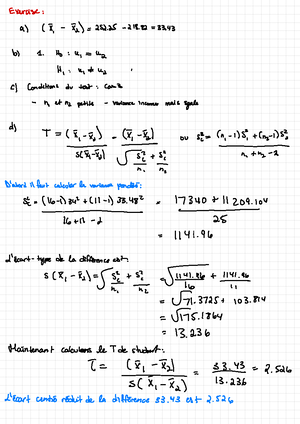 Exercise:
a) (x̄₁ - x̄₂) = 252.25 - 218.82 = 33.43
b) 1. H₀ : u₁ = u₂
H₁ : u₁ ≠ u₂
c) Conditions du test :
- n₁ et n₂ petits - variance inconnue mais égale
d) T = (x̄₁ - x̄₂) / S(x̄₁ - x̄₂) = (x̄₁ - x̄₂) / √(Sc²/n₁ + Sc²/n₂) où Sc² = ((n₁ - 1)S₁² + (n₂ - 1)S₂²) / (n₁ + n₂ - 2)
D'abord il faut calculer la variance pondérée:
Sc² = ((16-1)34² + (11-1)33.48²) / (16 + 11 - 2) = (17340 + 11209.104) / 25
= 1141.96
L'écart-type de la différence est:
S(x̄₁ - x̄₂) = √(Sc²/n₁ + Sc²/n₂) = √(1141.96/16 + 1141.96/11)
= √(71.3725 + 103.814)
= √175.1864
= 13.236
Maintenant calculons le T de student:
T = (x̄₁ - x̄₂) / S(x̄₁ - x̄₂) = 33.43 / 13.236 = 2.526
L'écart centré réduit de la différence 33.43 est 2.526